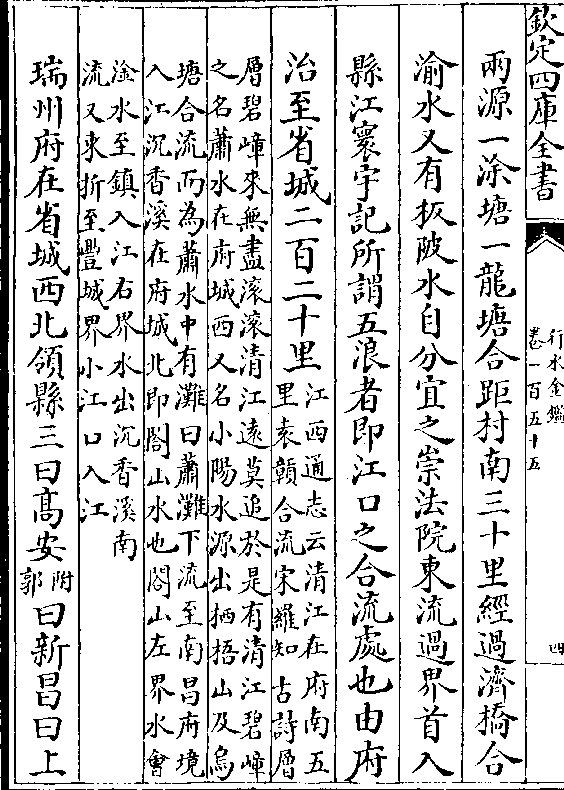 欽定四庫全書
行水金鑑
卷一百五十五
四
兩源一涂塘一龍塘合距村南三十里經過濟橋合
渝水又有板陂水自分宜之崇法院東流過界首入
縣江寰宇記所謂五浪者即江口之合流處也由府
治至省城二百二十里
江西通志云清江在府南五
里袁贛合流宋羅知古詩層
層碧嶂來無盡滚滚清江遠莫追於是有清江碧嶂
之名蕭水在府城西又名小陽水源出栖梧山及烏
塘合流而為蕭水中有灘曰蕭灘下流至南昌府境
入江沉香溪在府城北即閣山水也閣山左界水會
淦水至鎮入江右界水出沉香溪南
流又東折至豐城界小江口入江
瑞州府在省城西北領縣三曰髙安附郭曰新昌曰上